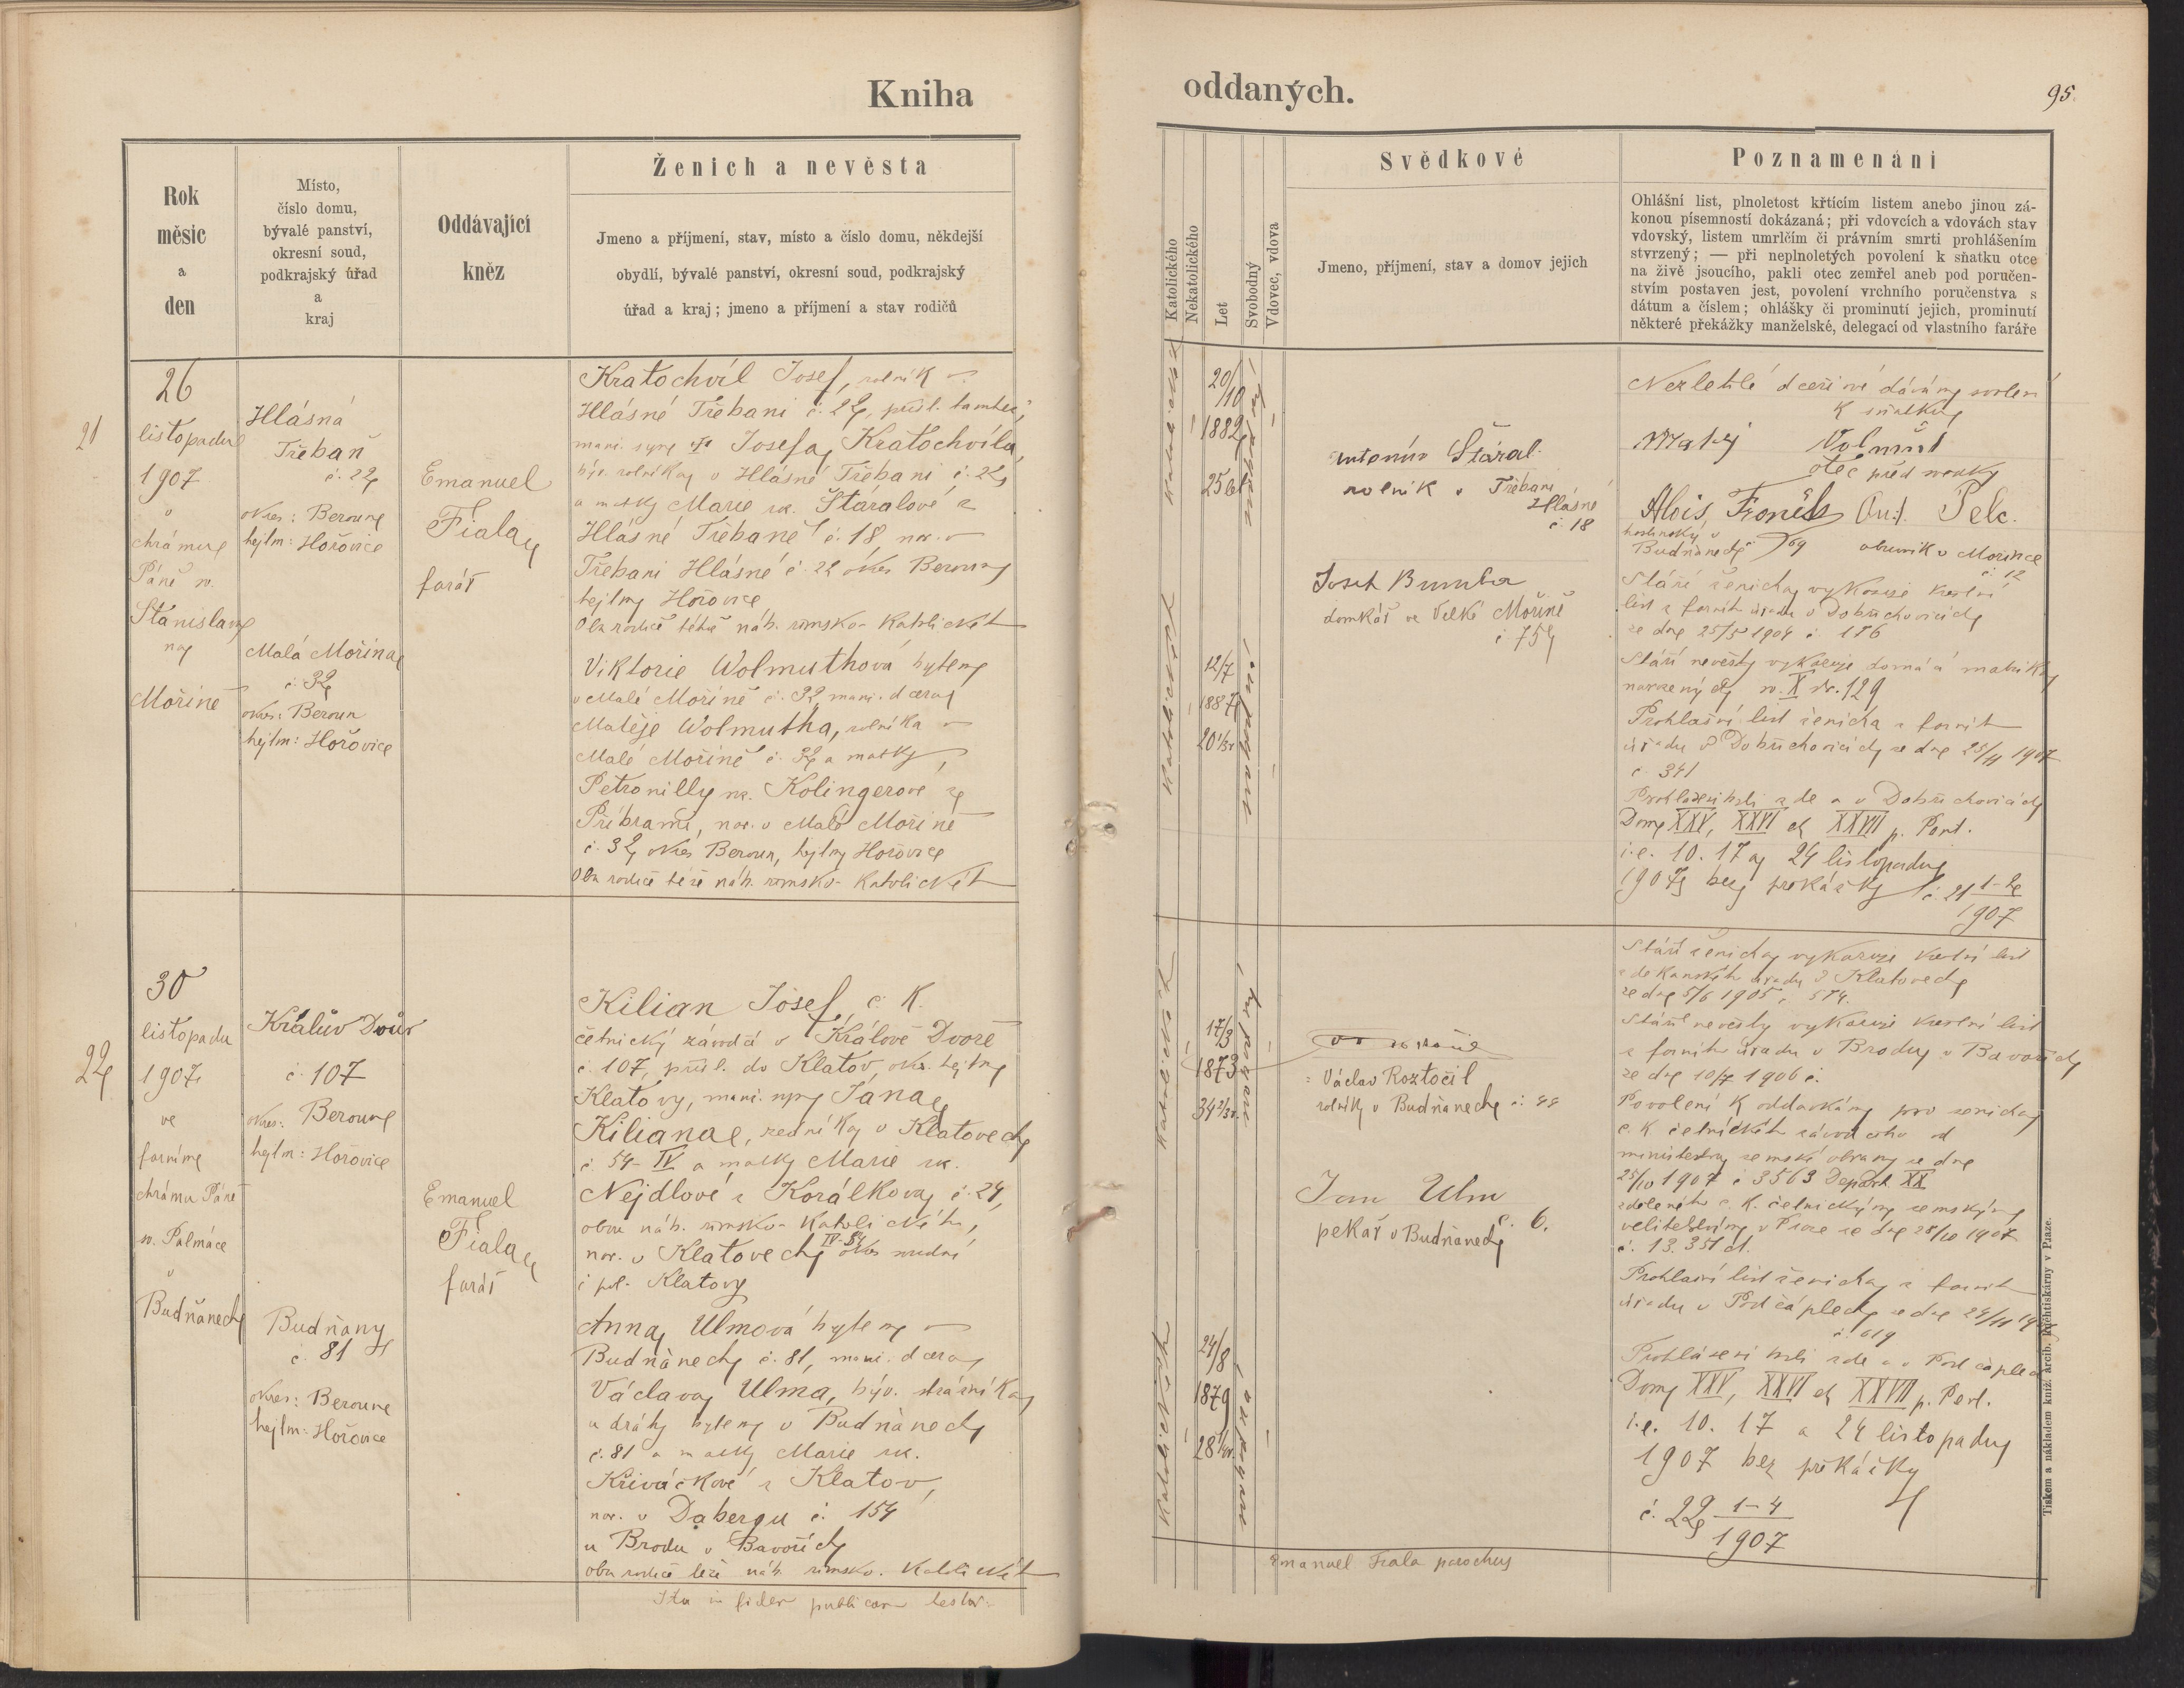 Kniha
oddaných.
95.
Rok
měsíc
a
den
Místo,
číslo domu,
bývalé panství,
okresní soud,
podkrajský úřad
a
kraj
Oddávající
kněz
Ženich a nevěsta
Jmeno a příjmení, stav, místo a číslo domu, někdejší
obydlí, bývalé panství, okresní soud, podkrajský
úřad a kraj; jmeno a příjmení a stav rodičů
Katolického
Nekatolického
Let
Svobodný
Vdovec, vdova
Svědkové
Jmeno, příjmení, stav a domov jejich
Poznamenáni
Ohlášní list, plnoletost křtícím listem anebo jinou zá-
konou písemností dokázaná; při vdovcích a vdovách stav
vdovský, listem umrlčím či právním smrti prohlášením
stvrzený; — při neplnoletých povolení k sňatku otce
na živě jsoucího, pakli otec zemřel aneb pod poručen-
stvím postaven jest, povolení vrchního poručenstva s
dátum a číslem; ohlášky či prominutí jejich, prominutí
některé překážky manželské, delegací od vlastního faráře
21
26
listopadu
1907
v
chrámu
Páně sv.
Stanislava
na
Mořině
Hlásná
Třebaň
č. 22
okres: Beroun
hejtm: Hořovice
Malá Mořina
č. 32
okres: Beroun
hejtm: Hořovice
Emanuel
Fiala
farář
Kratochvíl Josef, rolník v
Hlásné Třebani č. 22, přísl. tamtéž,
manž. syn Josefa Kratochvíla,
býv. rolníka v Hlásné Třebani č. 22
a matky Marie roz. Štáralové z
Hlásné Třebaně č. 18 nar. v
Třebani Hlásné č. 22 okres Beroun
hejtm Hořovice
Oba rodiče téhož náb. římsko-katolického
Viktorie Wolmuthová bytem
v Malé Mořině č. 32 manž. dcera
Matěje Wolmutha, rolníka v
Malé Mořině č. 32 a matky
Petronilly roz. Kolingerové z
Příbrami, nar. v Malé Mořině
č. 32 okres Beroun, hejtm Hořovice
Oba rodiče téže náb. římsko-katolického
katolického
20/10
1882
25 let
svobodný
katolického
12/7
1887
20
svobodná
Antonín Štáral
rolník v Třebani
Hlásné
č. 18
Josef Bumba
domkář ve Velké Mořině
č. 75
Nezletilé dceři své dávám svolení
k sňatku
Matěj Volmut
otec před svědky
Alois Froněk Ant. Pelc
hostinský v
Budňanech 69 obuvník v Mořince
č. 12
Stáří ženicha vykazuje křestní
list z farního úřadu v Dobřichovicích
ze dne 25/5 1904 č. 176
Stáří nevěsty vykazuje domácí matrika
narozených sv. X str. 129
Prohlašní list ženicha z farního
úřadu v Dobřichovicích ze dne 25/11 1907
č 341
Prohlášeni byli zde a v Dobřichovicích
Dom XXV, XXVI et XXVII p. Pent.
i.e. 10. 17 a 24 listopadu
1907 bez překážky č. 21 1-2
1907
22
30
listopadu
1907
ve
farním
chrámu Páně
sv. Palmácie
v
Budňanech
Králův Dvůr
č. 107
okres: Beroun
hejtm: Hořovice
Budňany
č. 81
okres: Beroun
hejtm: Hořovice
Emanuel
Fiala
farář
Kilian Josef, c. k.
četnický závodčí v Králově Dvoře
č. 107, přísl. do Klatov, okr. hejtm
Klatovy, manž. syn Jana
Kiliana, v Klatovech
č. 54-IV a matky Marie roz.
Nejdlové z Korálkova č. 24,
obou náb. římsko-katolického,
nar. v Klatovech IV-54 okres soudní
i pol. Klatovy
Anna Ulmová bytem v
Budňanech č. 81, manž. dcera
Václava Ulma, býv. strážníka
u dráhy bytem v Budňanech
č. 81 a matky Marie roz.
Křiváčkové z Klatov,
nar. v Dabergu č. 154
u Brodu v Bavořích
oba rodiče téže náb. římsko-katolického
Ita in fidem publicam testor:
katolického
17/3
1873
34
svobodný
katolického
24/8
1879
28
svobodná
Václav Roztočil
rolník v Budňanech č. 44
Jan Ulm
pekař v Budňanech č. 6.
Stáří ženicha vykazuje křestní list
z děkanského úřadu v Klatovech
ze dne 5/6 1905 č. 574.
Stáří nevěsty vykazuje křestní list
z farního úřadu v Brodu v Bavořích
ze dne 10/7 1906 č.
Povolení k oddavkám pro ženicha
c. k. četnického závodčího od
ministerstva zemské obrany ze dne
25/10 1907 č 3563 Depart XX
sděleného c. k. četnickým zemským
velitelstvím v Praze ze dne 28/10 1907
č. 13.351 d.
Prohlašní list ženicha z farního
úřadu v Počáplech ze dne 24/11 1907
č. 619
Prohlášeni byli zde a v Počáplech
Dom XXV, XXVI et XXVII p. Pent.
i.e. 10. 17 a 24 listopadu
1907 bez překážky
č. 22 1-4
1907
Emanuel Fiala parochus
Tiskem a nákladem kníž. arcib. knihtiskárny v Praze.